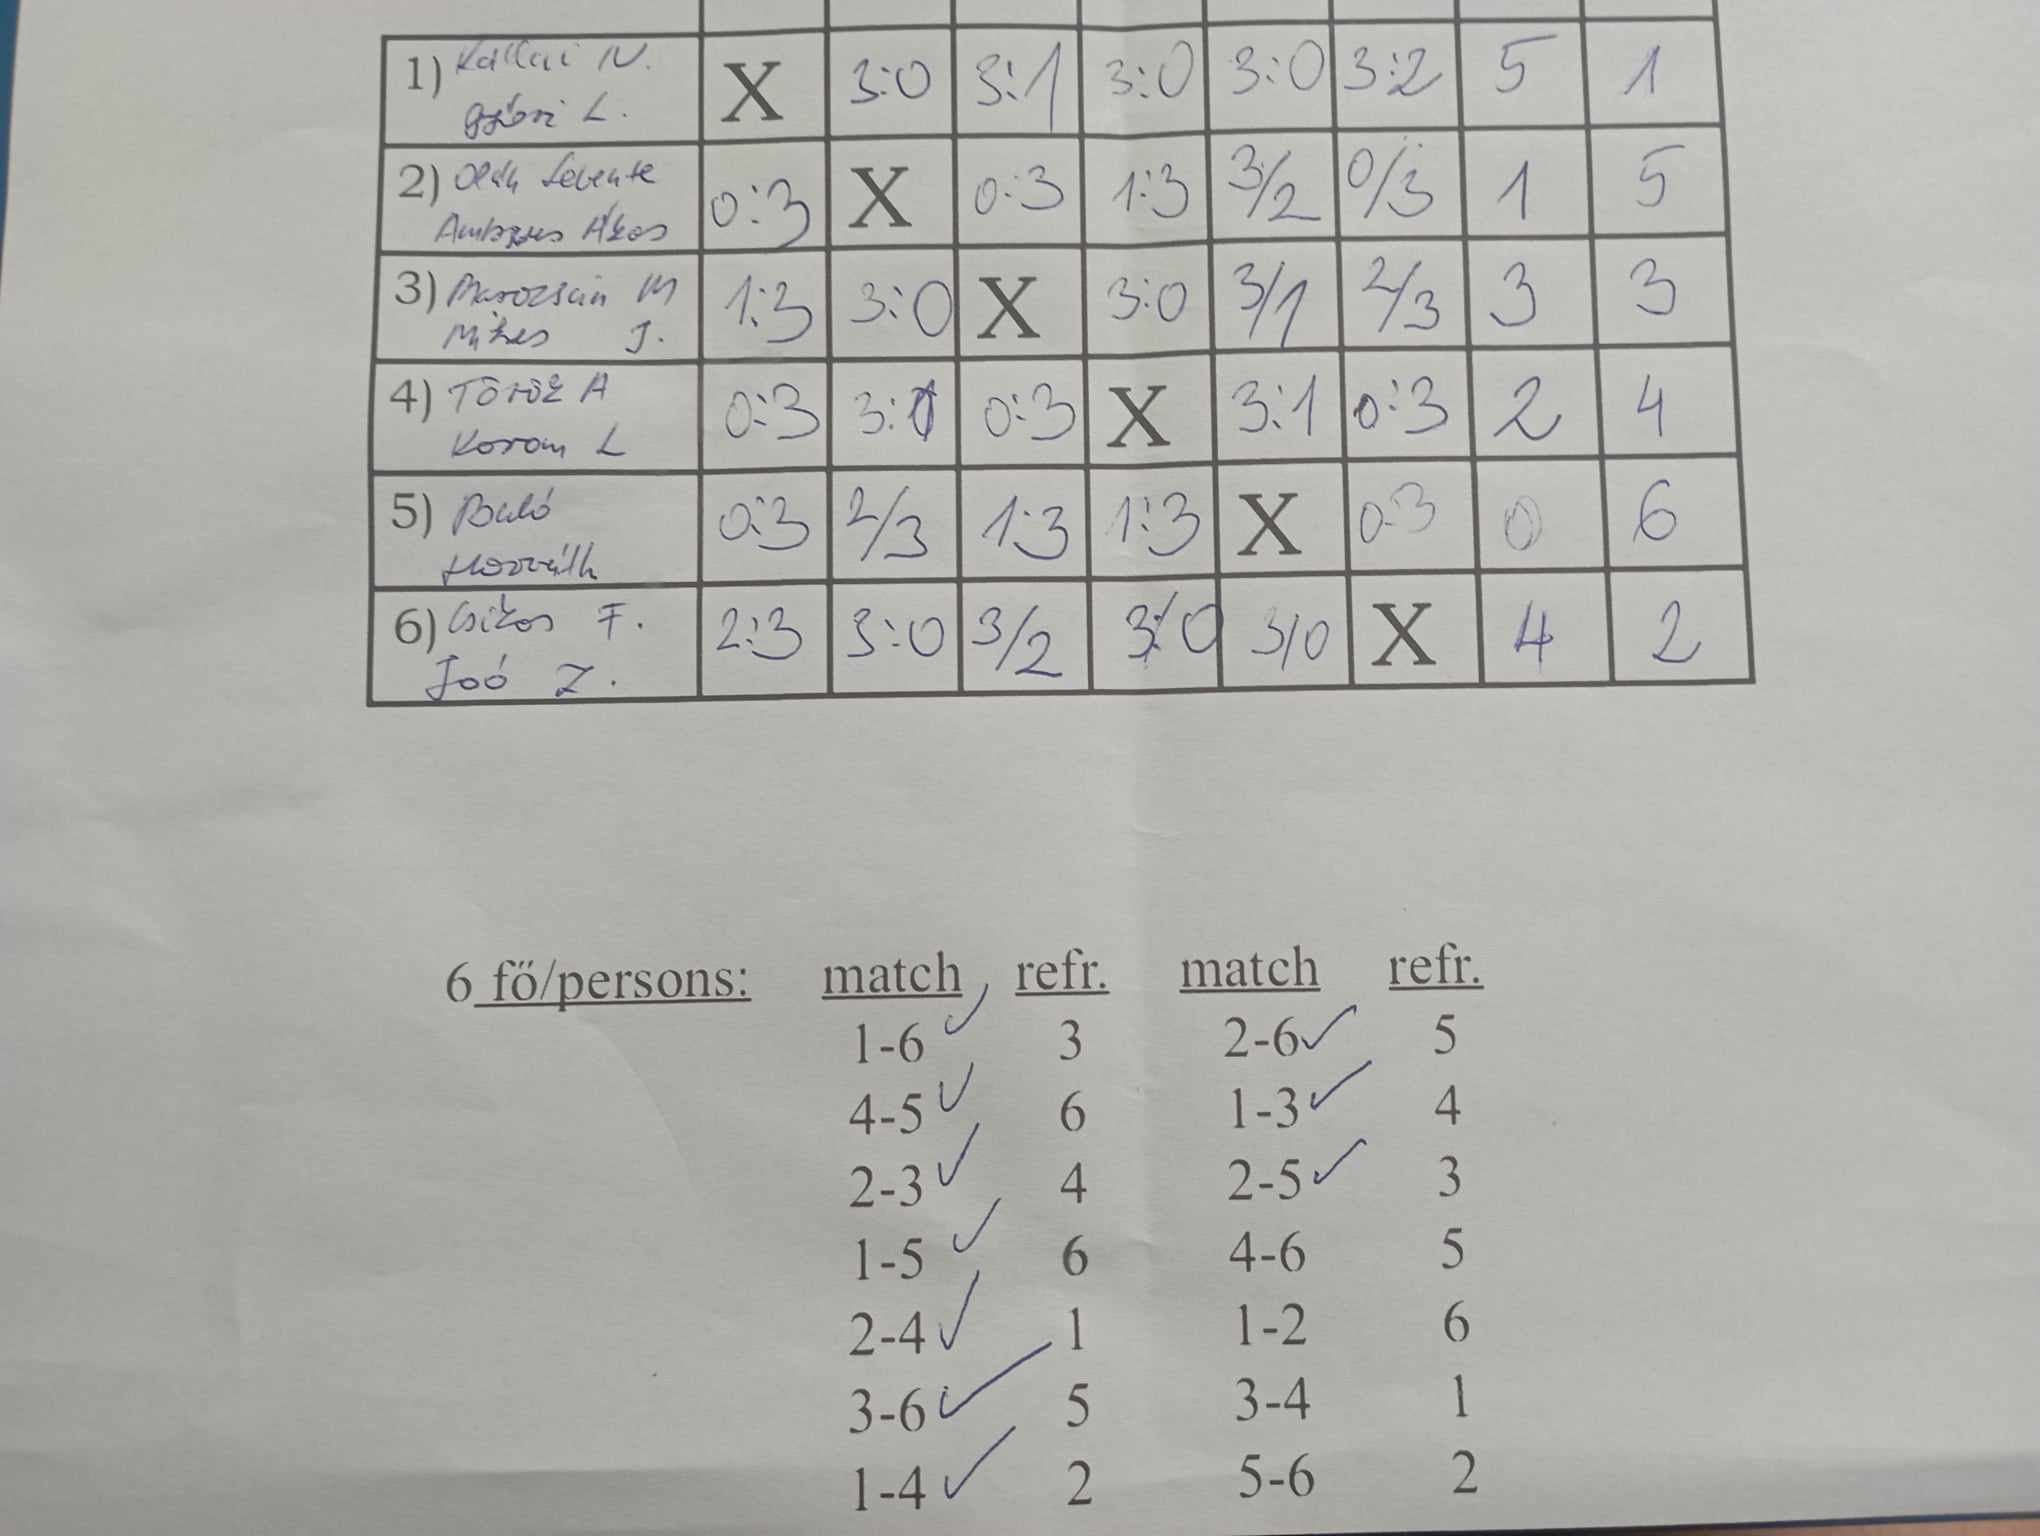 1) Kállai N. X 3:0 3:1 3:0 3:0 3:2 5 1
Győri L.
2) Oláh Levente 0:3 X 0:3 1:3 3/2 0/3 1 5
Ambrus Ákos
3) Marozsán M 1:3 3:0 X 3:0 3/1 2/3 3 3
Mikes J.
4) Török A 0:3 3:1 0:3 X 3:1 0:3 2 4
Korom L
5) 0:3 2/3 1:3 1:3 X 0:3 0 6
Horváth
6) Csikos F. 2:3 3:0 3/2 3:0 3/0 X 4 2
Joó Z.
6 fö/persons: match refr. match refr.
1-6 3 2-6 5
4-5 6 1-3 4
2-3 4 2-5 3
1-5 6 4-6 5
2-4 1 1-2 6
3-6 5 3-4 1
1-4 2 5-6 2